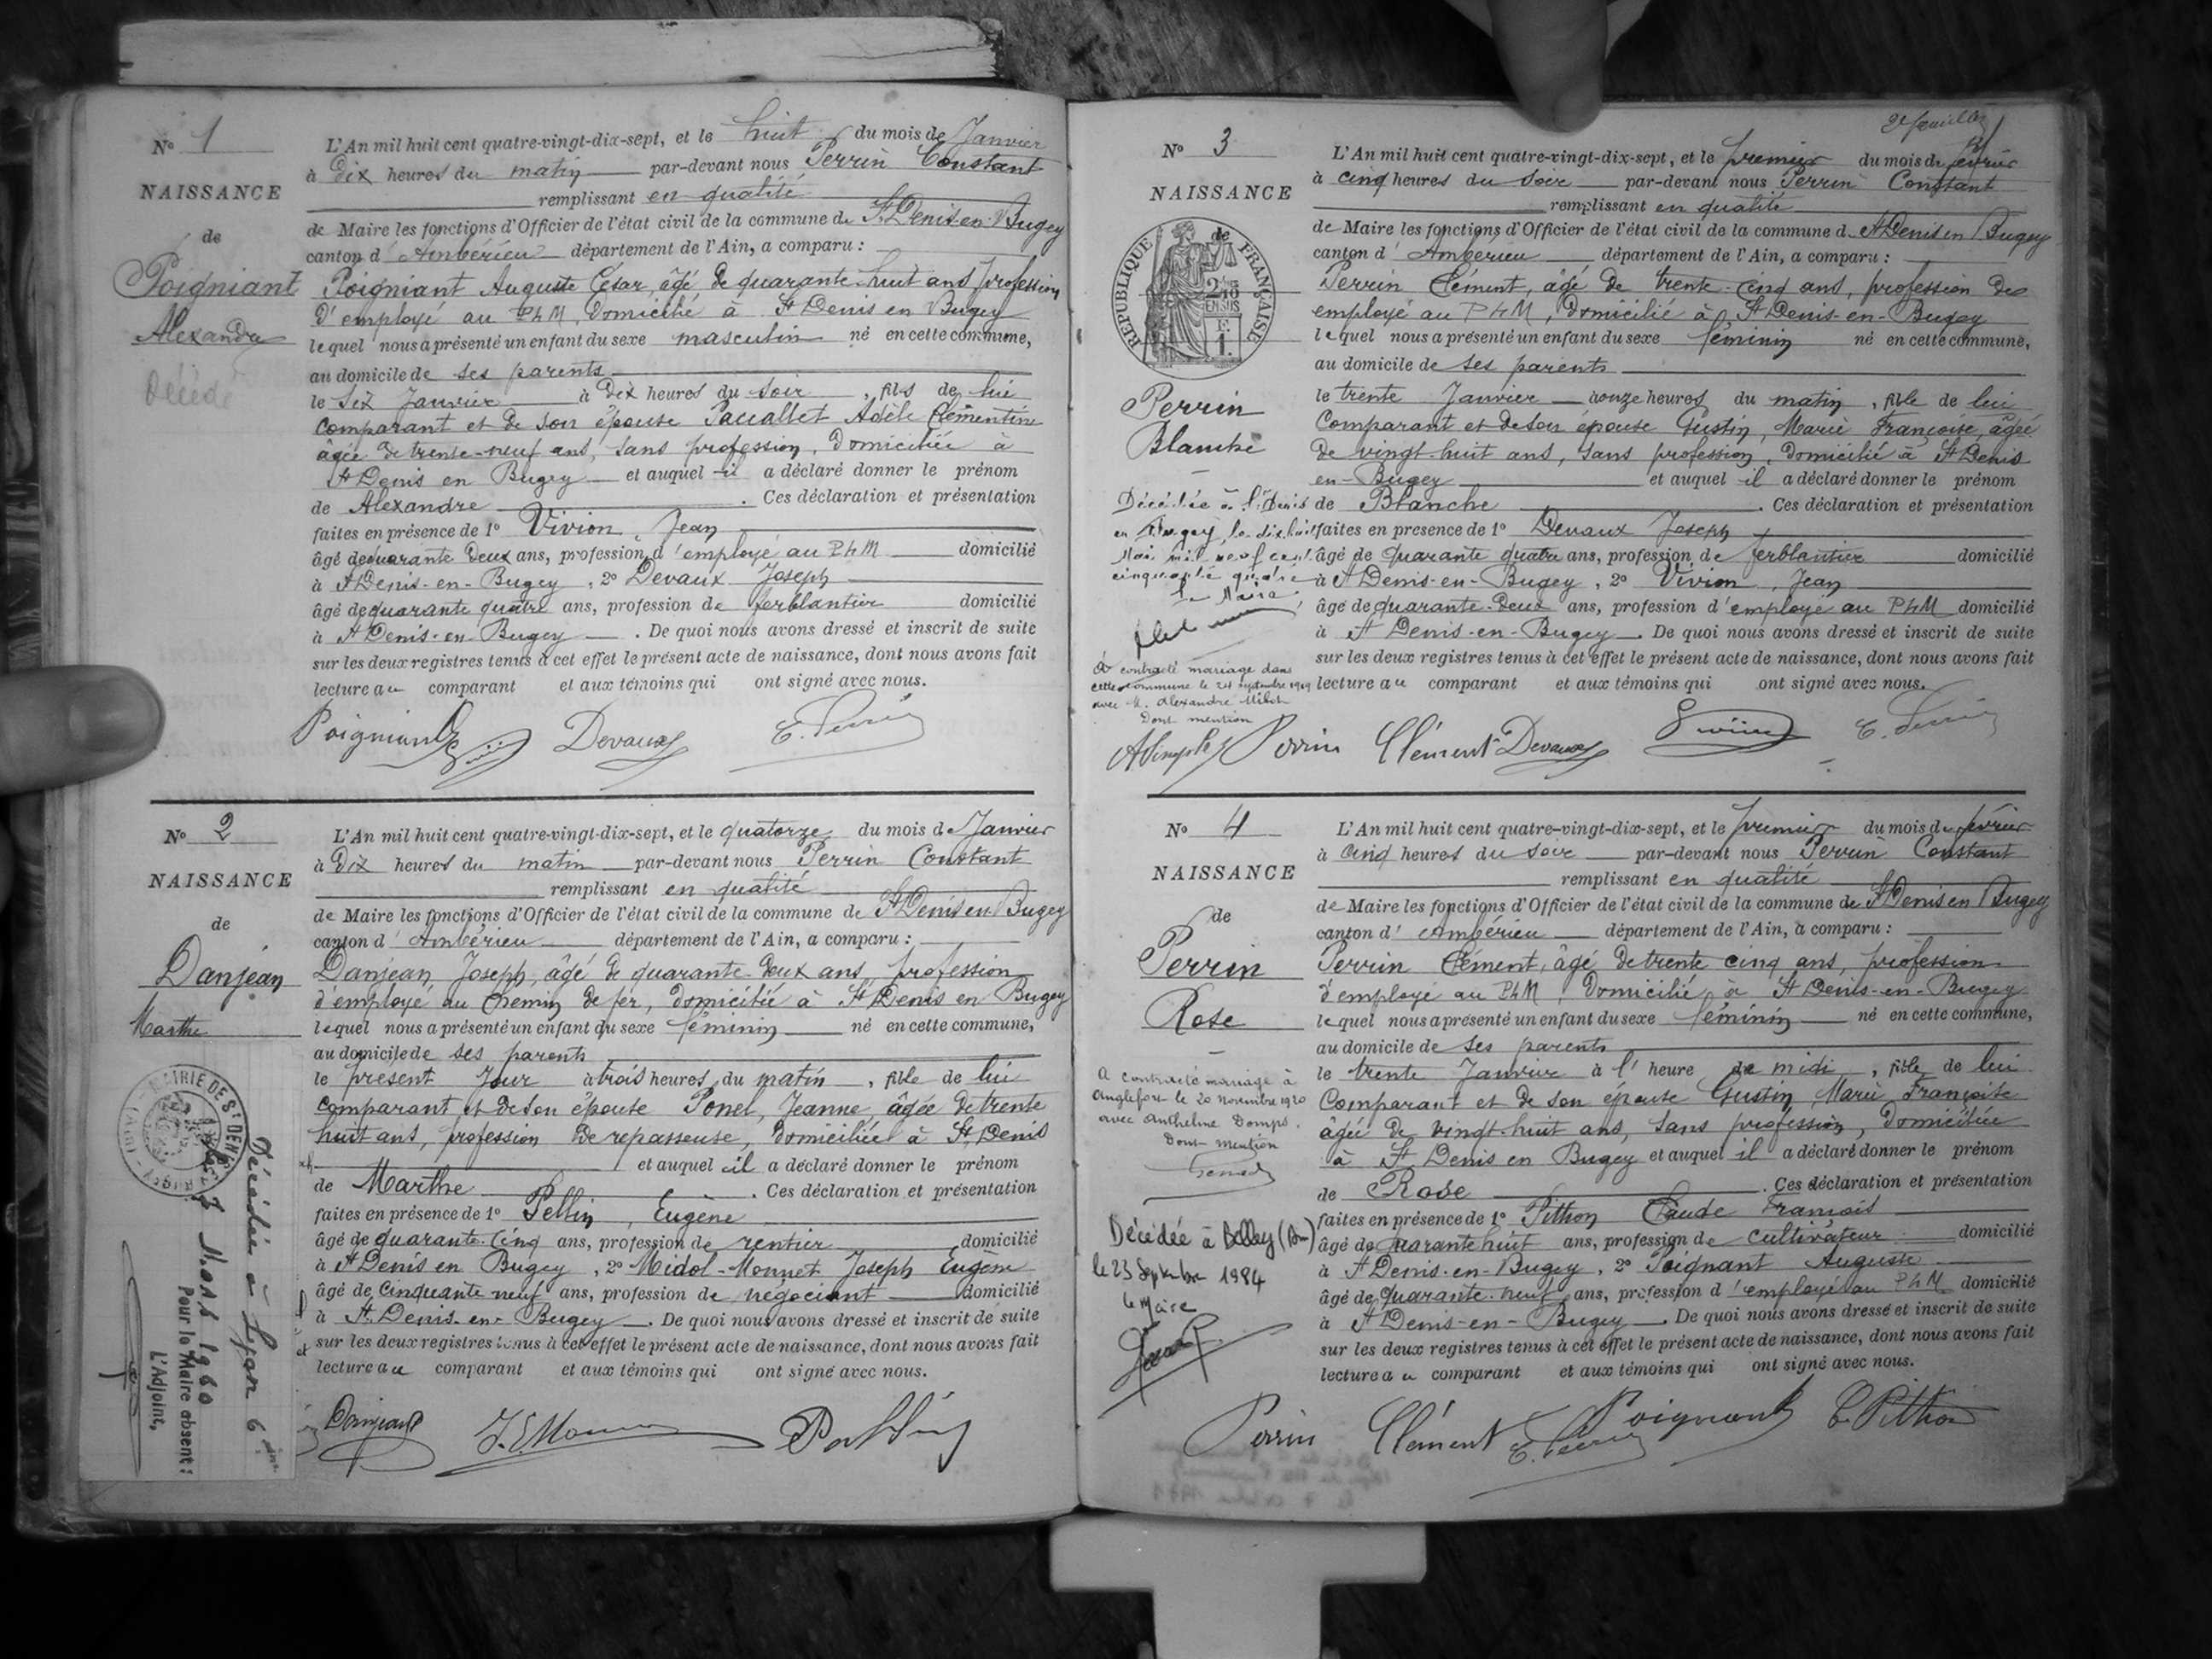 N° 1
NAISSANCE
de
Poigniant
Alexandre
Décédé
L'An mil huit cent quatre-vingt-dix-sept, et le huit du mois de Janvier
à Dix heures du matin par-devant nous Perrin Constant
remplissant en qualité
de Maire les fonctions d'Officier de l'état civil de la commune de St Denis-en-Bugey
canton d'Ambérieu département de l'Ain, a comparu :
Poigniant Auguste César, âgé de quarante-huit ans, profession
d'employé au PLM, domicilié à St Denis en Bugey
lequel nous a présenté un enfant du sexe masculin né en cette commune,
au domicile de ses parents
le six Janvier à Dix heures du soir, fils de lui
comparant et de son épouse Adèle Clémentine
âgée de trente-neuf ans, sans profession, domiciliée à
St Denis en Bugey et auquel il a déclaré donner le prénom
de Alexandre. Ces déclaration et présentation
faites en présence de 1° Vivion, Jean
âgé de quarante deux ans, profession d'employé au PLM domicilié
à St Denis-en-Bugey, 2° Devaux Joseph
âgé de quarante quatre ans, profession de ferblantier domicilié
à St Denis-en-Bugey. De quoi nous avons dressé et inscrit de suite
sur les deux registres tenus à cet effet le présent acte de naissance, dont nous avons fait
lecture au comparant et aux témoins qui ont signé avec nous.
Poigniant Devaux C. Perrin
N° 2
NAISSANCE
de
Danjean
Marthe
MAIRIE DE ST DENIS
Décédée à Lyon 6ème
Mars 1960
Pour le Maire absent :
L'Adjoint,
L'An mil huit cent quatre-vingt-dix-sept, et le quatorze du mois de Janvier
à Dix heures du matin par-devant nous Perrin Constant
remplissant en qualité
de Maire les fonctions d'Officier de l'état civil de la commune de St Denis en Bugey
canton d'Ambérieu département de l'Ain, a comparu :
Danjean, Joseph, âgé de quarante-deux ans, profession
d'employé au Chemin de fer, domiciliée à St Denis en Bugey
lequel nous a présenté un enfant du sexe féminin né en cette commune,
au domicile de ses parents
le présent Jour à trois heures du matin, fille de lui
comparant et de son épouse Ponel, Jeanne, âgée de trente
huit ans, profession de repasseuse, domiciliée à St Denis
et auquel il a déclaré donner le prénom
de Marthe. Ces déclaration et présentation
faites en présence de 1° Pellin, Eugène
âgé de quarante-cinq ans, profession de rentier domicilié
à St Denis en Bugey, 2° Midol-Monnet Joseph Eugène
âgé de Cinquante neuf ans, profession de négociant domicilié
à St Denis-en-Bugey. De quoi nous avons dressé et inscrit de suite
sur les deux registres tenus à cet effet le présent acte de naissance, dont nous avons fait
lecture au comparant et aux témoins qui ont signé avec nous.
Danjean
2e feuillet
N° 3
NAISSANCE
de
REPUBLIQUE FRANÇAISE
Perrin
Blanche
Décédée à St Denis
en Bugey le dix huit
Mai mil neuf cent
cinquante quatre
Le Maire
A contracté mariage dans
cette commune le 24 septembre 1919
avec M. Alexandre
Dont mention
L'An mil huit cent quatre-vingt-dix-sept, et le premier du mois de février
à cinq heures du soir par-devant nous Perrin Constant
remplissant en qualité
de Maire les fonctions d'Officier de l'état civil de la commune d St Denis en Bugey
canton d'Ambérieu département de l'Ain, a comparu :
Perrin Clément, âgé de trente-cinq ans, profession de
employé au PLM, domicilié à St Denis-en-Bugey
lequel nous a présenté un enfant du sexe féminin né en cette commune,
au domicile de ses parents
le trente Janvier à onze heures du matin, fille de lui
Comparant et de son épouse Gustin, Marie Françoise, âgée
de vingt-huit ans, sans profession, domicilié à St Denis
en-Bugey et auquel il a déclaré donner le prénom
de Blanche. Ces déclaration et présentation
faites en présence de 1° Devaux Joseph
âgé de quarante quatre ans, profession de ferblantier domicilié
à St Denis-en-Bugey, 2° Vivion, Jean
âgé de quarante-deux ans, profession d'employé au PLM domicilié
à St Denis-en-Bugey. De quoi nous avons dressé et inscrit de suite
sur les deux registres tenus à cet effet le présent acte de naissance, dont nous avons fait
lecture au comparant et aux témoins qui ont signé avec nous.
Perrin Clément Devaux C. Perrin
N° 4
NAISSANCE
de
Perrin
Rose
A contracté mariage à
Anglefort le 20 novembre 1920
avec Anthelme Domps.
Dont mention
Décédée à Belley (Ain)
le 23 Septembre 1984
le Maire
L'An mil huit cent quatre-vingt-dix-sept, et le premier du mois de février
à cinq heures du soir par-devant nous Perrin Constant
remplissant en qualité
de Maire les fonctions d'Officier de l'état civil de la commune de St Denis en Bugey
canton d'Ambérieu département de l'Ain, a comparu :
Perrin Clément, âgé de trente cinq ans, profession
d'employé au PLM, domicilié à St Denis-en-Bugey
lequel nous a présenté un enfant du sexe féminin né en cette commune,
au domicile de ses parents
le trente Janvier à l'heure de midi, fille de lui
Comparant et de son épouse Gustin, Marie Françoise
âgée de vingt-huit ans, sans profession, domiciliée
à St Denis en Bugey et auquel il a déclaré donner le prénom
de Rose. Ces déclaration et présentation
faites en présence de 1° Pithon Claude François
âgé de quarante huit ans, profession de cultivateur domicilié
à St Denis-en-Bugey, 2° Poignant Auguste
âgé de quarante-neuf ans, profession d'employé au PLM domicilié
à St Denis-en-Bugey. De quoi nous avons dressé et inscrit de suite
sur les deux registres tenus à cet effet le présent acte de naissance, dont nous avons fait
lecture au comparant et aux témoins qui ont signé avec nous.
Perrin Clément C. Perrin Poignant C. Pithon